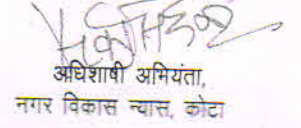 अधिशाषी अभियंता,
नगर विकास न्यास, कोटा